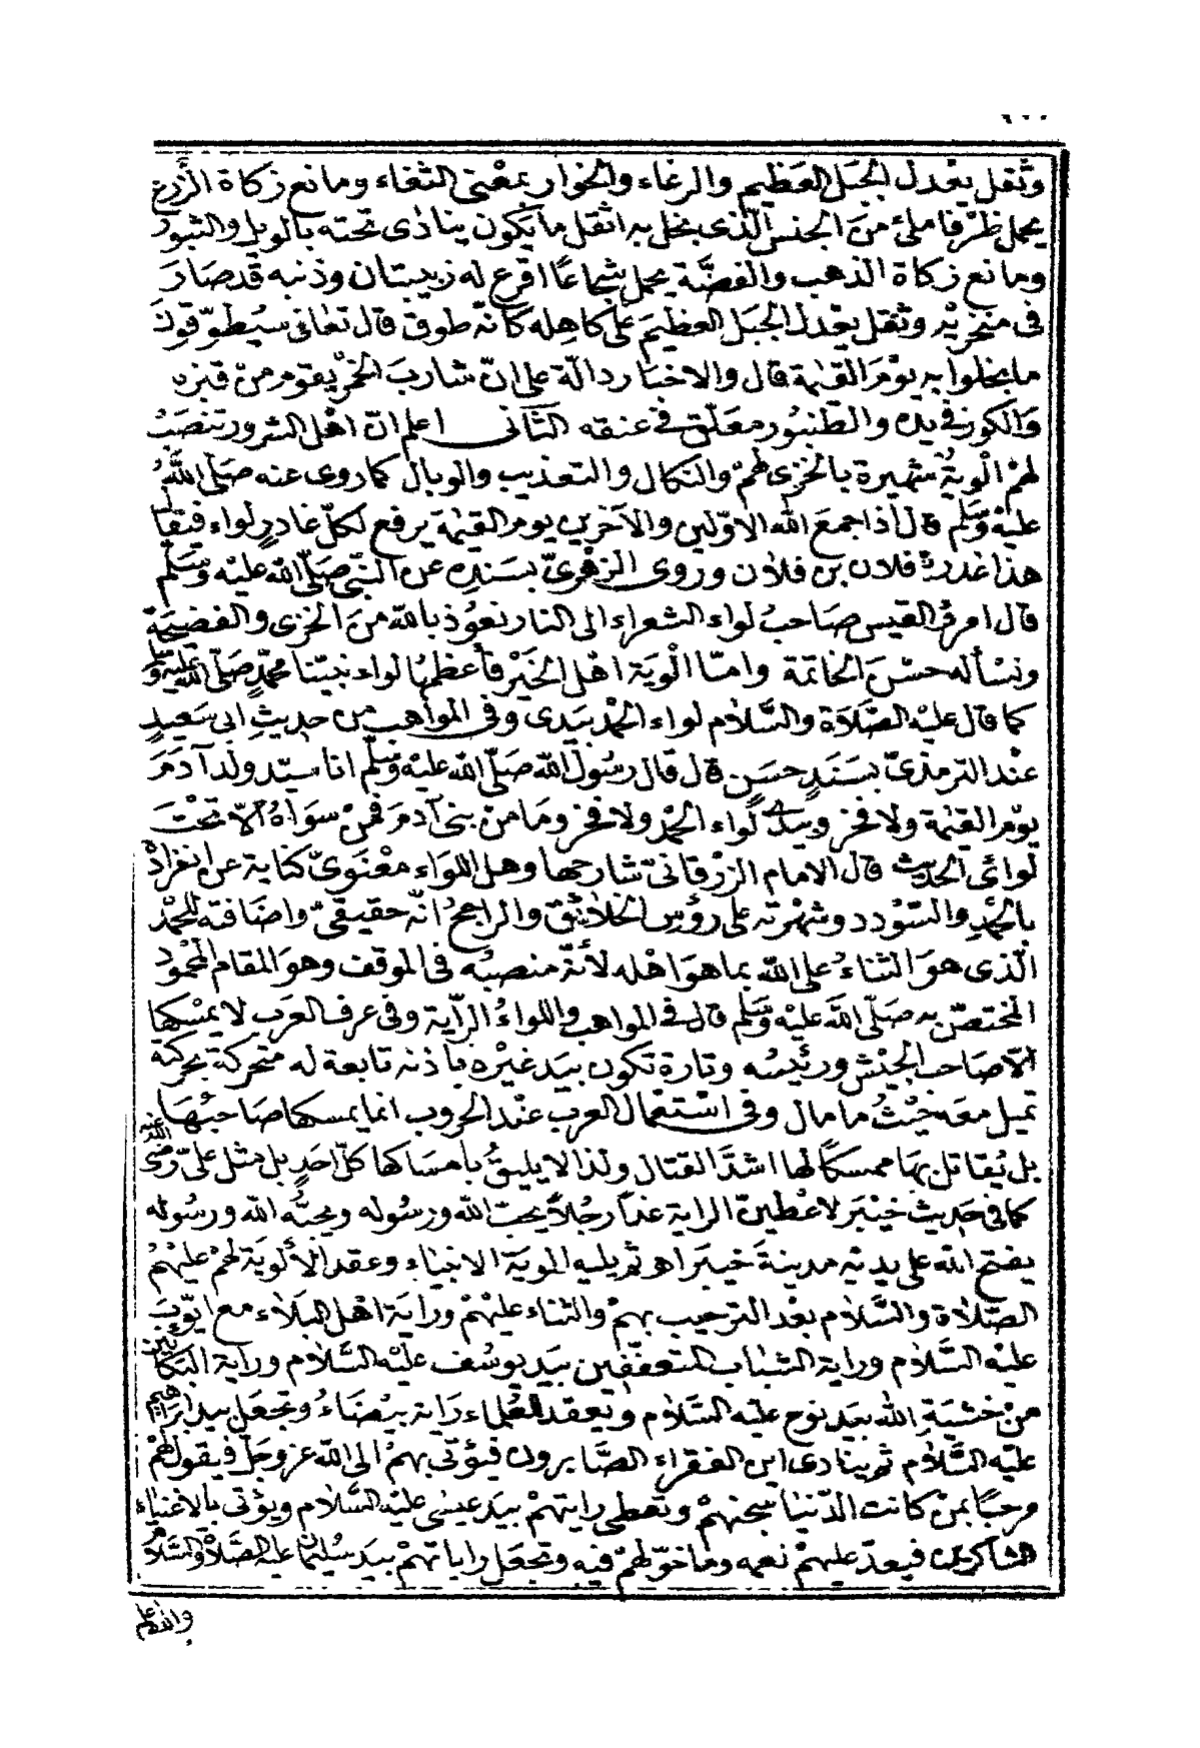 وثقل يعدل الجبل العظيم والرغاء والخوار بمعنى الثغاء ومانع زكاة الزرع
يحمل ظرفا ملئ من الجنس الذى بخل به اثقل ما يكون ينادى تحته بالويل والثبور
ومانع زكاة الذهب والفضّة يحمل شجاعًا اقرع له زبيبتان وذنبه قد صار
فى منخريه وثقل يعدل الجبل العظيم على كاهله كانّه طوق قال تعالى سيُطوّقون
ما بخلوا به يوم القيٰمة قال والاخبار دالّة على انّ شارب الخمر يقوم من قبره
والكوز فى يده والطّنبُور معلّق فى عنقه الثانى اعلم انّ اهل الشرور تنصبُ
لهم الْويةٌ شهيرة بالخزى لهمْ والنكال والتعذيب والوبال كما روى عنه صَلى الله
عليه وسلم قال اذا جمعَ الله الاوّلين والآخرين يوم القيٰمة يرفع لكلّ غادرٍ لواء فيقال
هذا غدرة فلان بن فلان وروى الزهرىّ بسنده عن النّبى صَلّى الله عليْه وسَلّم
قال امرؤ القيس صَاحبُ لواء الشعراء الى النار نعوُذ بالله منَ الخزى والفضيحة
ونسْأله حسْنَ الخاتمة وامّا الْويَة اهْل الخيْر فأعظمُها لواء نبيّنا محمّدٍ صَلّى الله عليه وسلم
كما قال عليْه الصَّلاة والسَّلام لواء الحمْد بيَدى وفى المواهب من حديثِ ابى سَعيدٍ
عنْد الترمذىّ بسَنَدٍ حسَنٍ قال قال رسُولُ الله صَلّى الله عليْه وسَلّم انا سيّد ولد آدمَ
يوْم القيٰمة ولا فخر وبيدى لواء الحمْد ولا فخر ومَا منْ بنى آدمَ فمنْ سوَاهُ الّا تحْتَ
لوائى الحديث قال الامام الزرْقانىّ شارحها وهل اللوَاء معْنوىّ كناية عن انفرادْ
بالحَمْدِ والسّؤدد وشهْرته على رؤس الخلائق والراجحُ انّه حقيقىّ واضافته للحمْد
الّذى هوَ الثناءُ على الله بما هوَ اهْله لأنّه منصبُه فى الموقف وهوَ المقام المحْمُود
المختصّ به صَلّى الله عليْه وسَلّم قال فى المواهب واللواءُ الرّاية وفى عرف العَرَب لا يمسْكها
الّا صَاحب الجيْش ورئيسُه وتارة تكون بيَد غيْره باذنه تابعة له متحركة بحركته
تميل معَه حيْثُ ما مال وفى اسْتعْمال العرب عنْد الحروب انما يمسكها صَاحبُهَا
بل يُقاتل بهَا ممسكًا لها اشدَّ القتال ولذا لا يليقُ بامسَاكها كلّ احَدٍ بل مثل علىّ رضى الله عنه
كما فى حَديث خيْبَر لاعْطينّ الراية غدًا رجُلاً يحبّ الله ورسُوله ويحبُّه الله ورسُوله
يفتح الله على يديْه مدينةَ خيبَر اهـ ثم يليه الوية الانبياء وعقد الألويَة لهمْ عليْهمُ
الصّلاة والسَّلام بعْد الترحيب بهمْ والثناء عليْهمْ ورايَة اهْل البَلاء مع ايّوبَ
عليْه السَّلام وراية الشباب المتعففين بيَد يوسُف عليْه السَّلام وراية البكائين
منْ خشيَةِ الله بيَد نوح عليْه السَّلام وتعقد للعُلماء رَاية بيْضَاءُ وتجعَل بيد ابراهيم
عليْه السَّلام ثم ينادى اين الفقراء الصَّابرون فيؤتى بهمُ الى الله عز وجلّ فيقول لهمْ
مرحبًا بمنْ كانت الدّنيَا سجنهمْ وتعطى رايتهمْ بيَد عيسٰى عليْه السَّلام ويؤتى بالاغنيَاء
الشاكرين فيعدّ عليهمْ نعمه وما خوّلهمْ فيه وتجعَل راياتهمْ بيَد سُليمٰان عليه الصَّلاة والسَّلام
والله اعلم